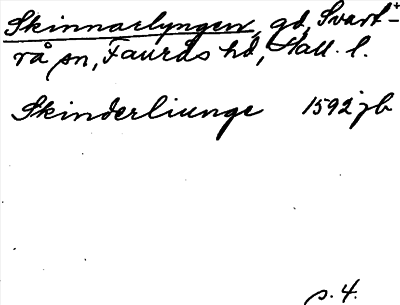 Skinnarlyngen, gd, Svart-
rå sn, Faurås hd, Hall. l.
Skinderliunge 1592 jb
s. 4.